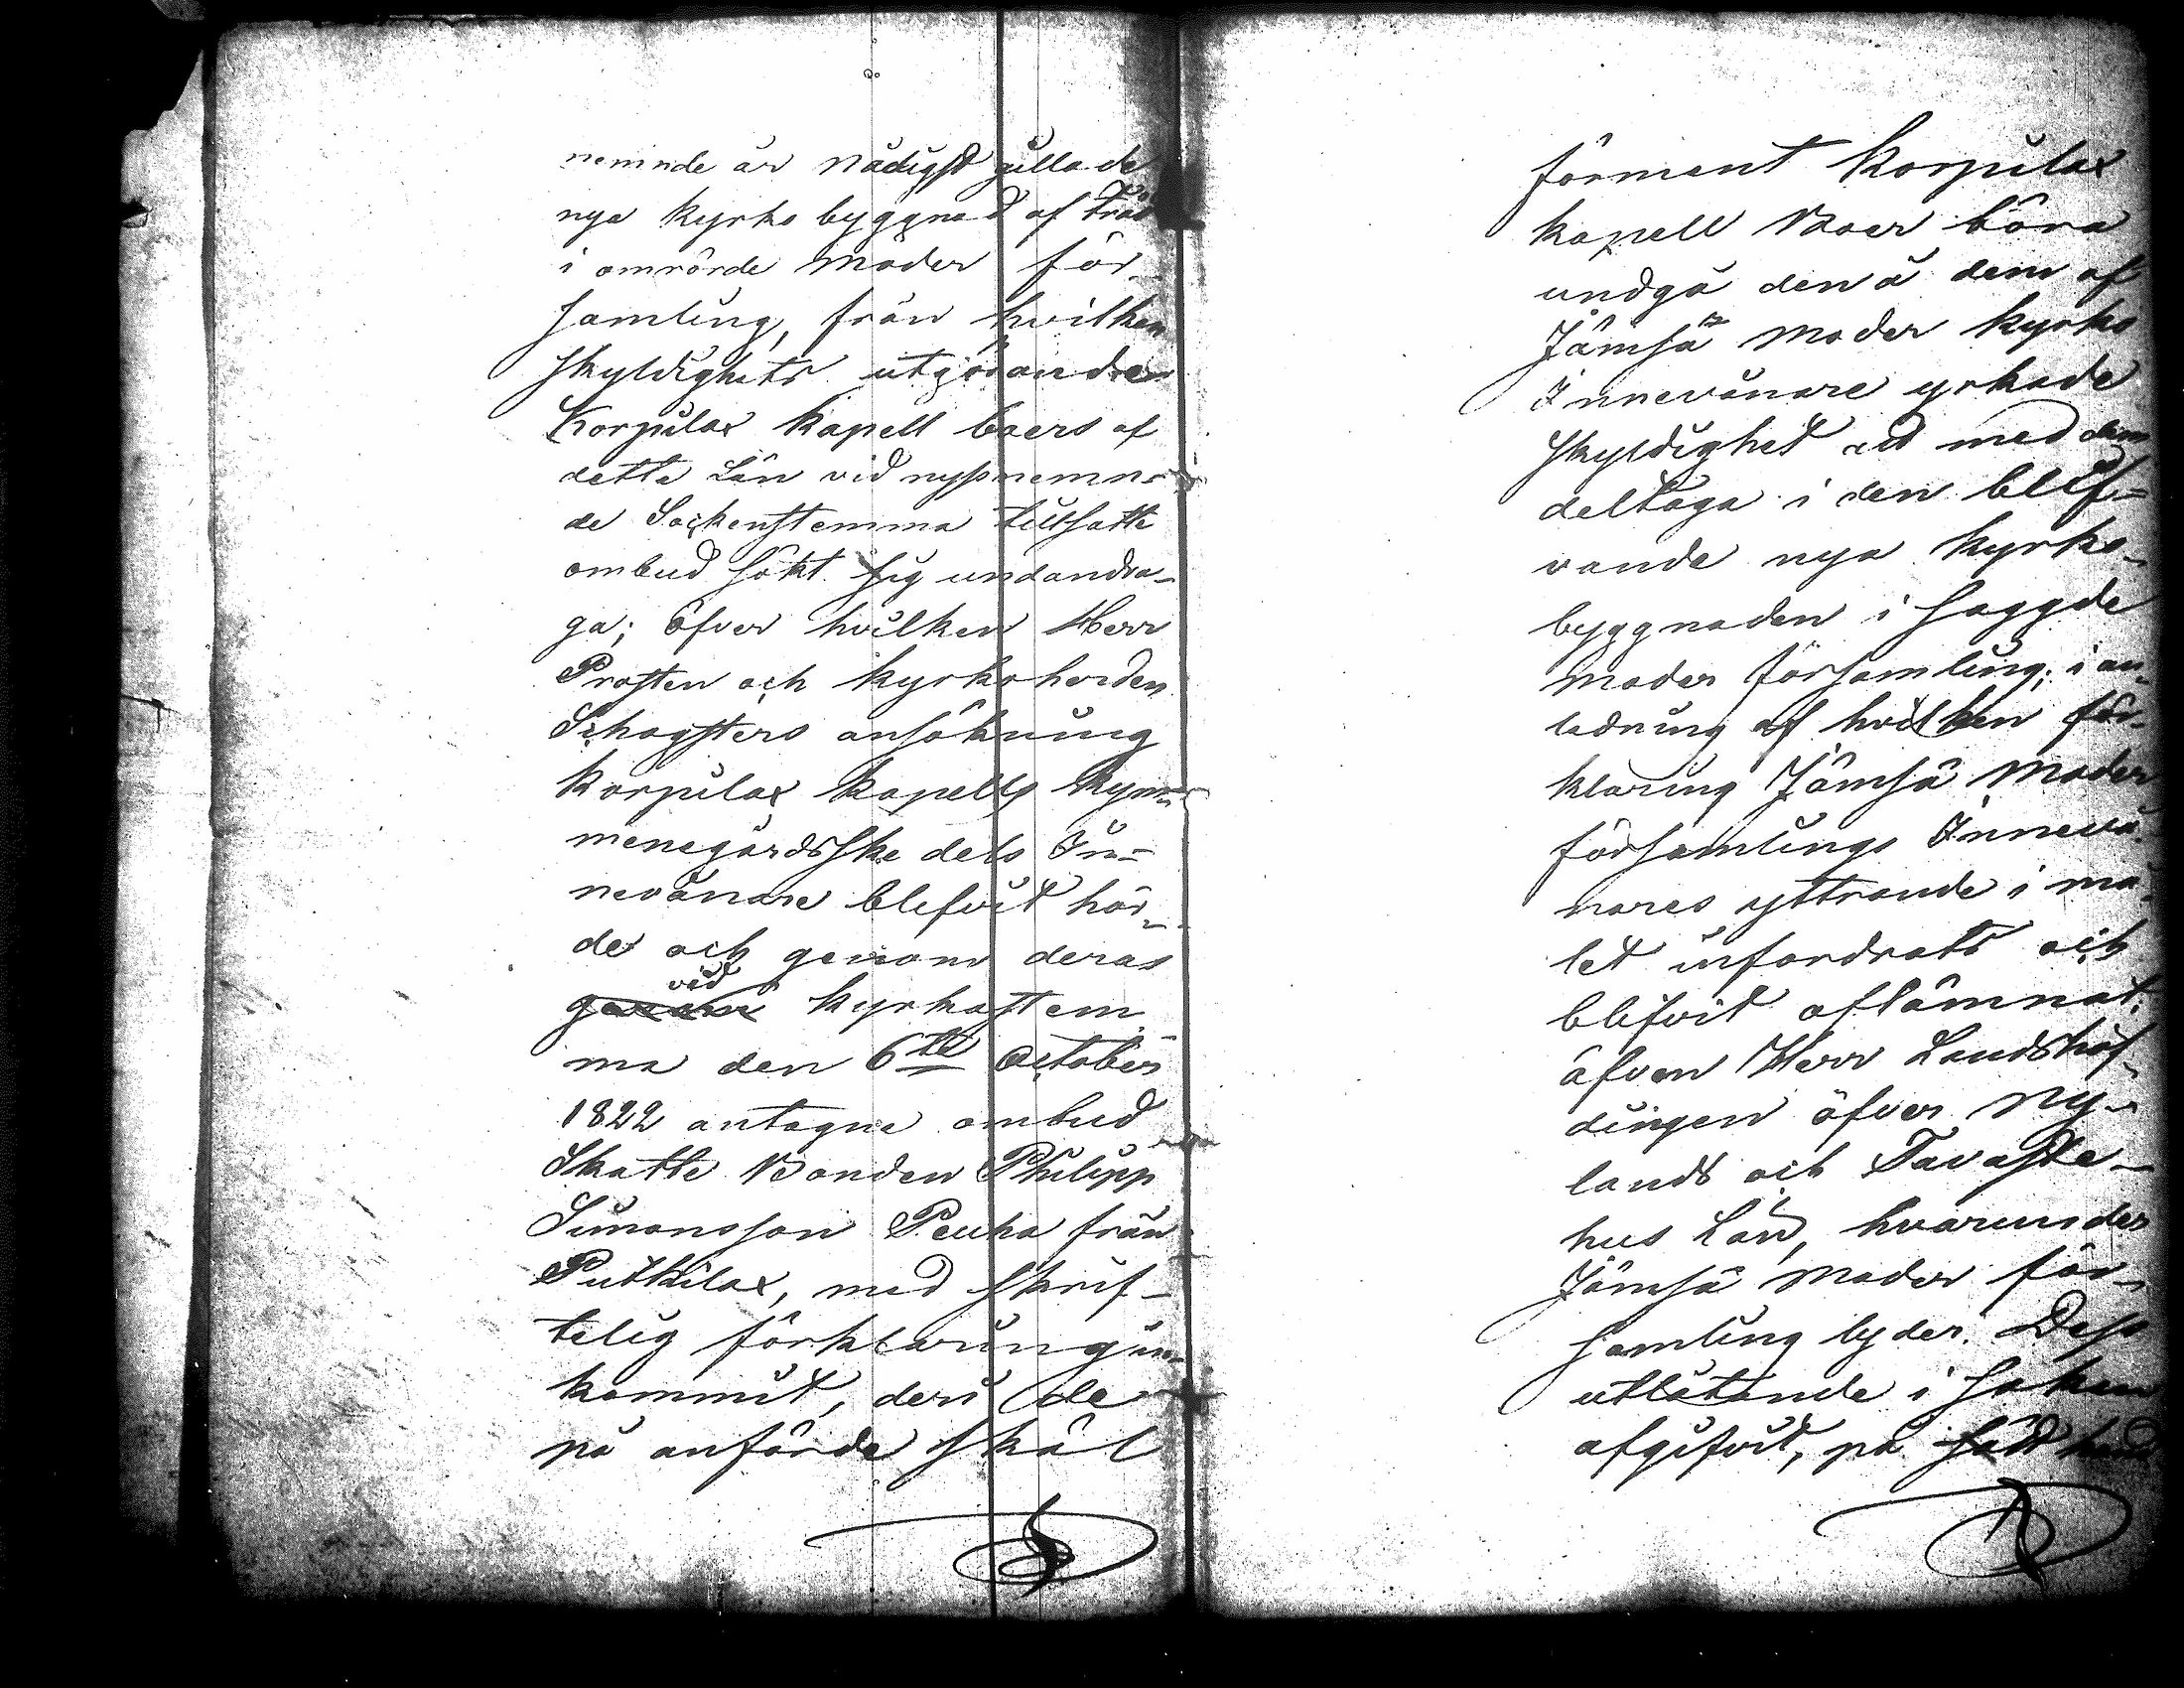 nemnde år Nådigst gillade
nya kyrko byggnad af Träd
i omrörde Moder för-
samling, från hvilken
skyldighets utgörande
Korpilax Kapell boers af
detta Län vid nyssnemn-
de Sockenstemma tillsatte
ombud sökt sig undandra-
ga; öfver hvilken Herr
Prosten och Kyrkoherden
ansökning
Korpilax Kapells Kym-
menegårdsske dels In-
nevånare blefvit hör-
de och genom deras
vid
genom Kyrkostem-
ma den 6te October
1822 antagne ombud
Skatte Bonden Philipp
Simonsson Peuha från
Putkilax, med skrif-
telig förklaring in-
kommit, deri de
på anförde skäl
förment Korpilax
Kapell Boer böra
undgå den å dem af
Jämsä Moder kyrko
Innevånare yrkade
skyldighet att med dem
deltaga i den blif-
vande nya kyrko-
byggnaden i sagde
Moder församling; i an-
ledning af hvilken för-
klaring Jämsä Moder
församlings Innevå-
nares yttrande i må-
let infordrats och
blifvit aflämnat;
äfven Herr Landshöf-
dingen öfver Ny-
lands och Tavaste-
hus Län, hvarunder
Jämsä Moder för-
samling lyder. Dess
utlåtande i saken
afgifvit, på sätt hand